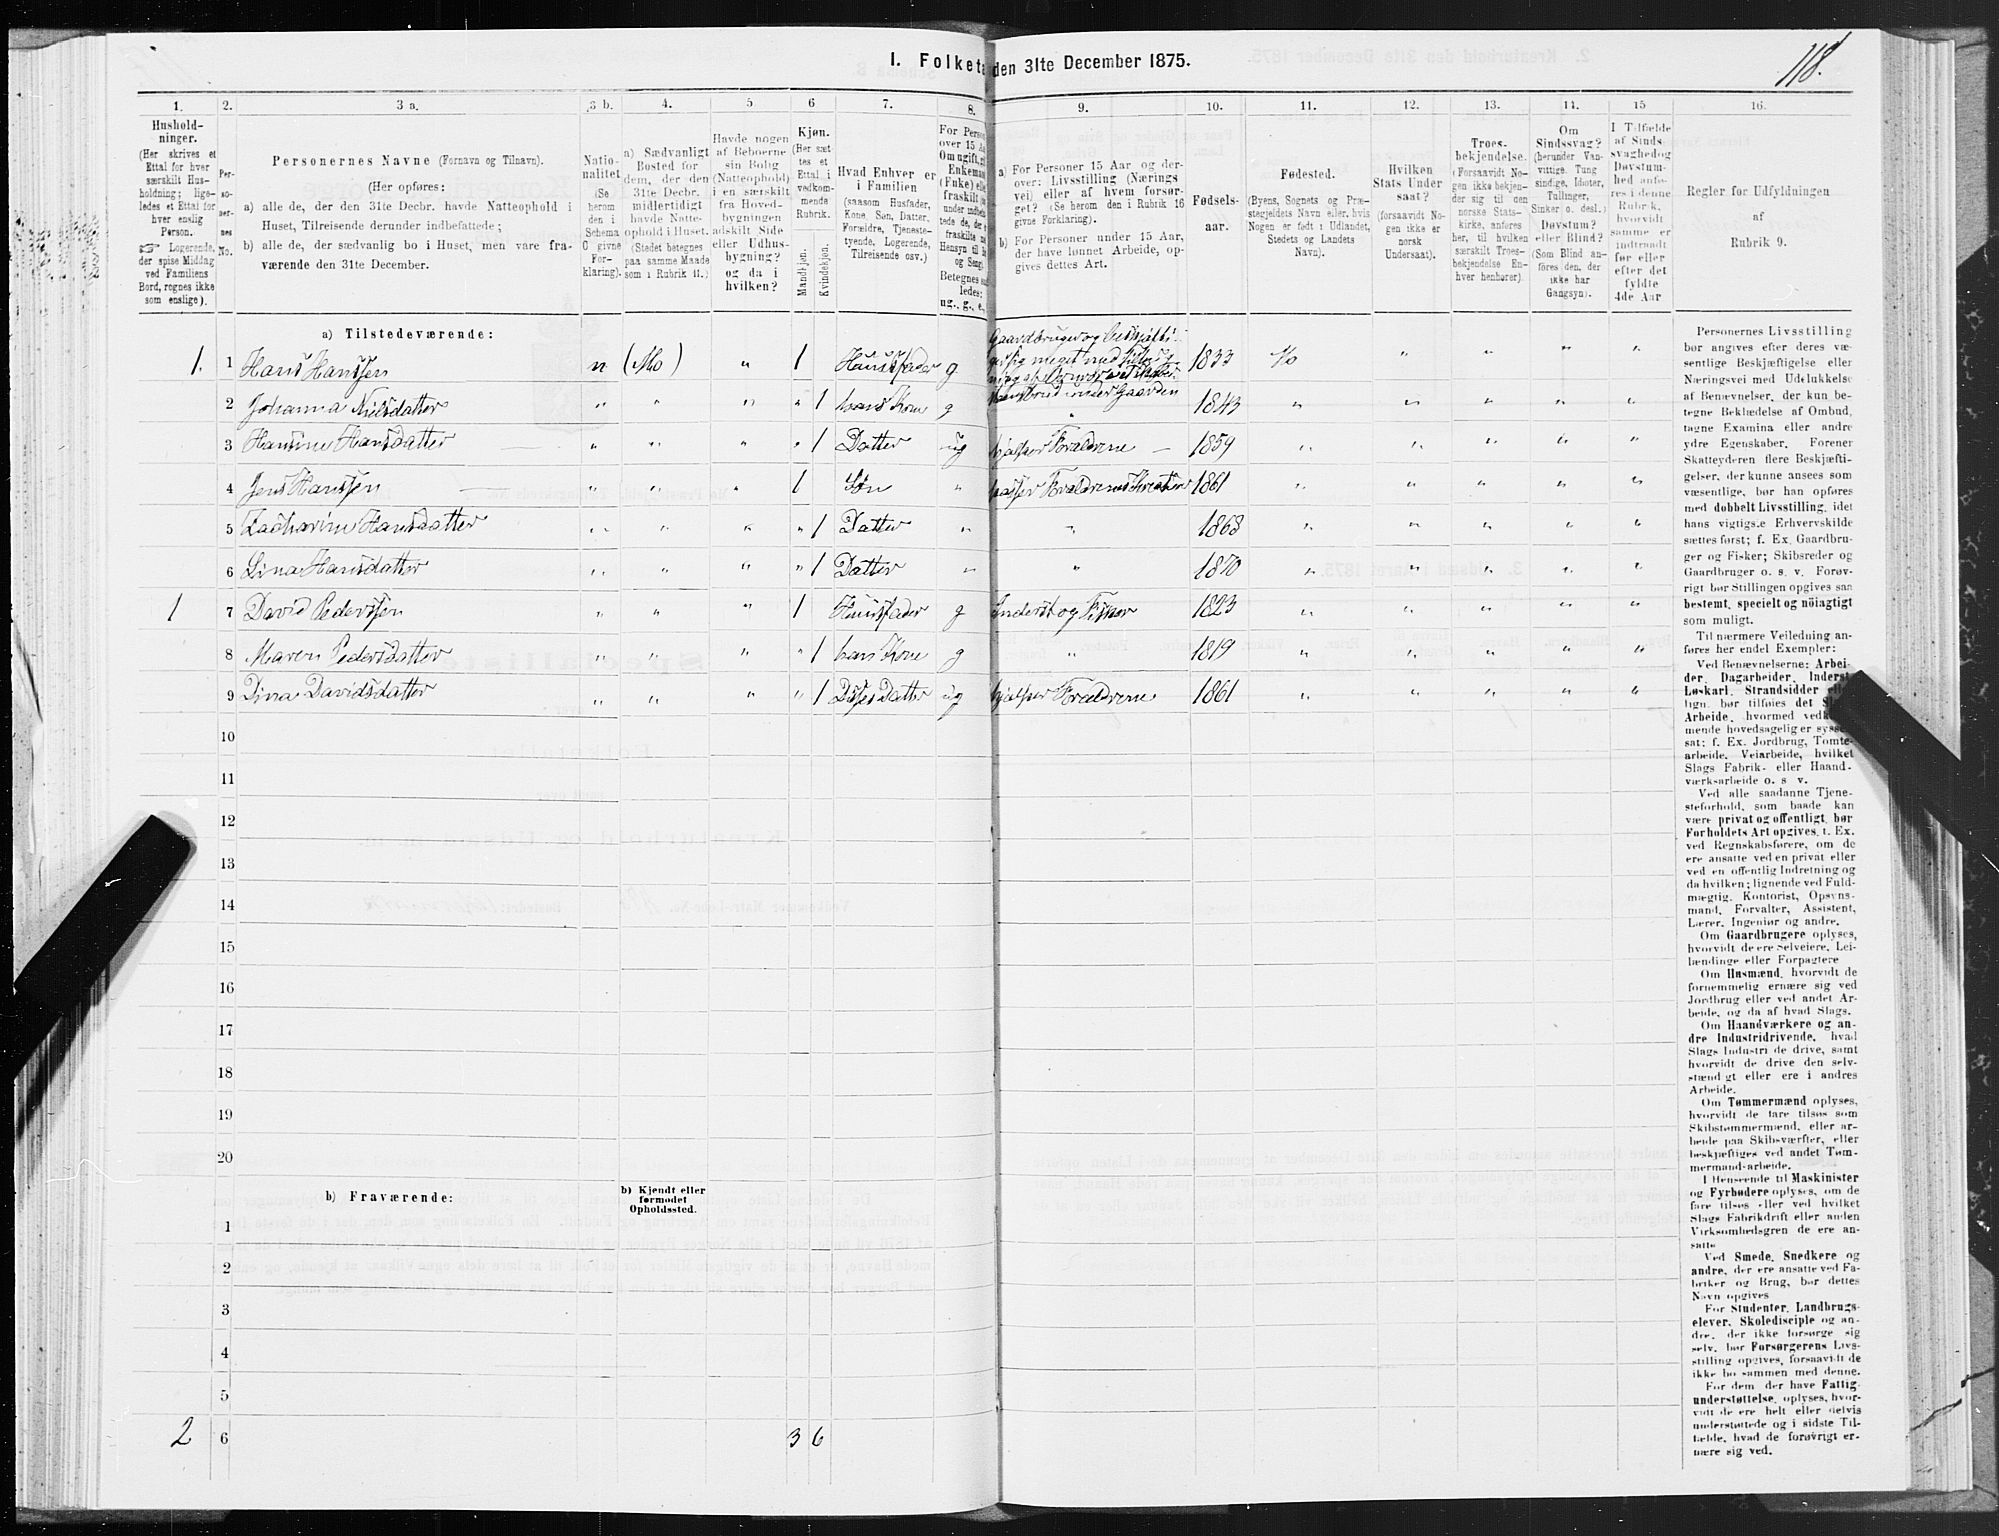 1. Folketa den 31te December 1875.
118.
1.
2.
3 a.
3 b.
4.
5
6
7.
8.
9.
10.
11.
12.
13.
14.
15
16.
Hushold-
ninger.
(Her skrives et
Ettal for hver
særskilt Hus-
holdning; lige-
ledes et Ettal for
hver enslig
Person.
☞ Logerende,
der spise Middag
ved Familiens
Bord, regnes ikke
som enslige).
Per-
so-
ner-
nes
No.
Personernes Navne (Fornavn og Tilnavn).
(Her opføres:
a) alle de, der den 31te Decbr. havde Natteophold i
Huset, Tilreisende derunder indbefattede;
b) alle de, der sædvanlig bo i Huset, men vare fra-
værende den 31te December.
Natio-
nalitet
(Se
herom
den i
Schema
C givne
For-
klaring).
a) Sædvanligt
Bosted for
dem, der den
31te Decbr.
midlertidigt
havde Natte-
ophold i Huset.
(Stedet betegnes
paa samme Maade
som i Rubrik 11.)
Havde nogen
af Beboerne
sin Bolig
(Natteophold)
i en særskilt
fra Hoved-
bygningen
adskilt Side
eller Udhus-
bygning?
og da i
hvilken?
Kjøn.
(Her sæt-
tes et
Ettal i
vedkom-
mende
Rubrik.
Mandkjøn.
Kvindekjøn.
Hvad Enhver er
i Familien
(saasom Husfader,
Kone, Søn, Datter,
Forældre, Tjeneste-
tyende, Logerende,
Tilreisende osv.)
For Person
over 15 Aa
Om ugift, gi
Enkeman
(Fuke) elle
fraskilt
ug., g., e.,
a) For Personer 15 Aar og der-
over: Livsstilling (Nærings
vei) eller af hvem forsør-
get? (Se herom den i Rubrik 16
givne Forklaring).
b) For Personer under 15 Aar,
der have lønnet Arbeide, op-
gives dettes Art.
Fødsels-
aar.
Fødested.
(Byens, Sognets og Præ-
stegjeldets Navn eller, hvis
Nogen er født i Udlandet,
Stedets og Landets
Navn).
Hvilken
Stats Under
saat?
(forsaavidt No-
gen ikke er
norsk
Undersaat).
Troes-
bekjendelse.
(Forsaavidt No-
gen ikke bekjen-
der sig til den
norske Stats-
kirke, anføres
her, til hvilken
særskilt Troes-
bekjendelse En-
hver henhører).
Om
Sindssvag?
(herunder Van-
vittige, Tung
sindige, Idioter,
Tullinger,
Sinker o. desl.)
Døvstum?
eller Blind?
(Som Blind an-
føres den, der
ikke har
Gangsyn).
I Tilfælde
af Sinds
svaghed og
Døvstum-
hed anfø-
res i denne
Rubrik,
hvorvidt
samme er
indtraadt
før eller
efter det
fyldte
4de Aar
Regler før Udfyldningen
af
Rubrik 9.
a) Tilstedeværende:
1. 1 Hans Hanssen n (Mo) " 1 Huusfader g Gaardbruger og 1833 Mo " " " "
2 Johanna Nilsdatter " " " " 1 hans Kone g " 1843 " " " " "
3 Hansine Hansdatter " " " " 1 Datter ug hjælper Forældrene 1859 " " " " "
4 Jens Hanssen " " " 1 Søn " passer Forældrenes 1861 " " " " "
5 Zacharine Hansdatter " " " " 1 Datter " " 1868 " " " " "
6 Lina Hansdatter " " " " 1 Datter " " 1870 " " " " "
1 7 David Pederssen " " " 1 Huusfader g Inderst og Fisker 1823 " " " " "
8 Maren Pedersdatter " " " " 1 hans Kone g " 1819 " " " " "
9 Dina Davidsdatter " " " " 1 Datter ug hjælper Forældrene 1861 " " " " "
10
11
12
13
14
15
16
17
18
19
20
b) Fraværende:
b) Kjendt eller
formodet
Opholdssted.
1
2
3
4
5
2 6 3 6
Personernes Livsstilling
bør angives efter deres væ-
sentlige Beskjæftigelse eller
Næringsvei med Udelukkelse
af Benævnelser, der kun be-
tegne Beklædelse af Ombud,
tagne Examina eller andre
ydre Egenskaber. Forener
Skatteyderen flere Beskjæfti-
gelser, der kunne ansees som
væsentlige, bør han opføres
med dobbelt Livsstilling, idet
hans vigtigste Erhvervskilde
sættes først; f. Ex. Gaardbru-
ger og Fisker; Skibsreder og
Gaardbruger o. s. v. Forøv-
rigt bør Stillingen opgives saa
bestemt, specielt og nöiagtigt
som muligt.
Til nærmere Veiledning an-
føres her endel Exempler:
Ved Benævnelserne: Arbei-
der, Dagarbeider, Inderst,
Løskarl, Strandsidder
lign. bør tilføies det
Arbeide, hvormed
mende hovedsagelig er
sat; f. Ex. Jordbrug, Tomte-
arbeide, Veiarbeide, hvilket
Slags Fabrik- eller Haand-
værksarbeide o. s v.
Ved alle saadanne Tjene-
steforhold, som baade kan
være privat og offentligt, bør
Forholdets Art opgives, t. Ex.
ved Regnskabsførere, om de
ere ansatte ved en privat eller
ved en offentlig Indretning og
da hvilken; lignende ved Fuld-
mægtig, Kontorist, Opsyns-
mand, Forvalter, Assistent,
Lærer, Ingeniør og andre.
Om Gaardbrugere oplyses,
hvorvidt de ere Selveiere, Lei-
lændinge eller Forpagtere
Om Husmænd, hvorvidt de
fornemmelig ernære sig ved
Jordbrug eller ved andet Ar-
beide, og da af hvad Slags.
Om Haandværkere og an-
dre Industridrivende, hvad
Slags Industri de drive, samt
hvorvidt de drive den selv-
stændigt eller ere i andres
Arbeide.
Om Tømmermænd oplyses,
hvorvidt de fare tilsøs som
Skibstømmermænd, eller ar-
beide paa Skibsværfter, eller
beskjæftiges ved andet Tøm-
mermand-arbeide.
I Henseende til Maskinister
og Fyrbødere oplyses, om de
fare tilsøs eller ved hvilket
Slags Fabrikdrift eller anden
Virksomhedsgren de ere an-
satte
Ved Smede, Snedkere og
andre, der ere ansatte ved Fa-
briker og Brug, bør dettes
Navn opgives
For Studenter, Landbrugs-
elever, Skoledisciple og an-
dre, der ikke forsørge sig
selv, bør Forsørgerens Livs-
stilling opgives, forsaavidt de
ikke bo sammen med denne.
For dem, der have Fattig-
understøttelse, oplyses, hvor-
vidt de ere helt eller delvis
understøttede og i sidste Til-
fælde, hvad de forøvrigt er-
nære sig ved.